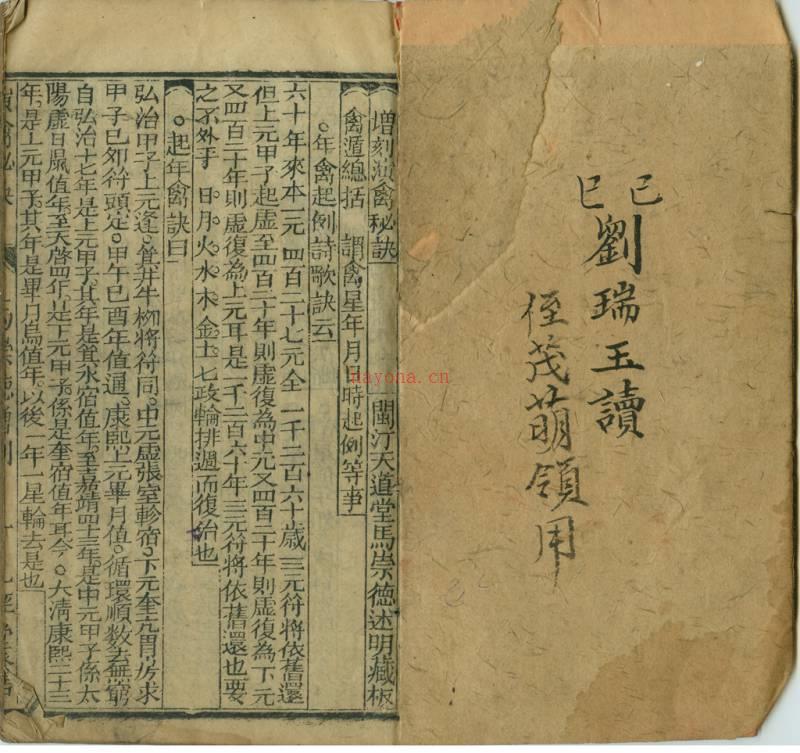 巳巳
劉瑞玉讀
侄茂萌領用
增刻演禽秘訣 閩汀天道堂馬崇德述明藏板
禽遁總括 謂禽星年月日時起例等事
。年禽起例詩歌訣云
六十年來本一元 四百二十七元全 一千二百六十歲 三元符將依舊還
但上元甲子起虛至四百二十年則虛復為中元又四百二十年則虛復為下元
又四百二十年則虛復為上元耳是一千二百六十年三元符將依舊還也要
之不外乎 日月火水木金土七政輪排週而復始也
。起年禽訣曰
弘治甲子上元逢。箕井牛柳將符同。中元虛張室軫宿。下元奎亢胃房求
甲子巳夘符頭定。甲午巳酉年值通。康熙上元畢月值。循環順數去無窮
自弘治十七年是上元甲子。其年是箕水宿值年。至嘉靖四十三年。是中元甲子係太
陽虛日鼠值年。至天啓四年。是下元甲子。係是奎宿值年耳。今。大清康熙二十三
年。是上元甲子。其年是畢月烏值年。以後一年一星輪去是也
nayona.cn